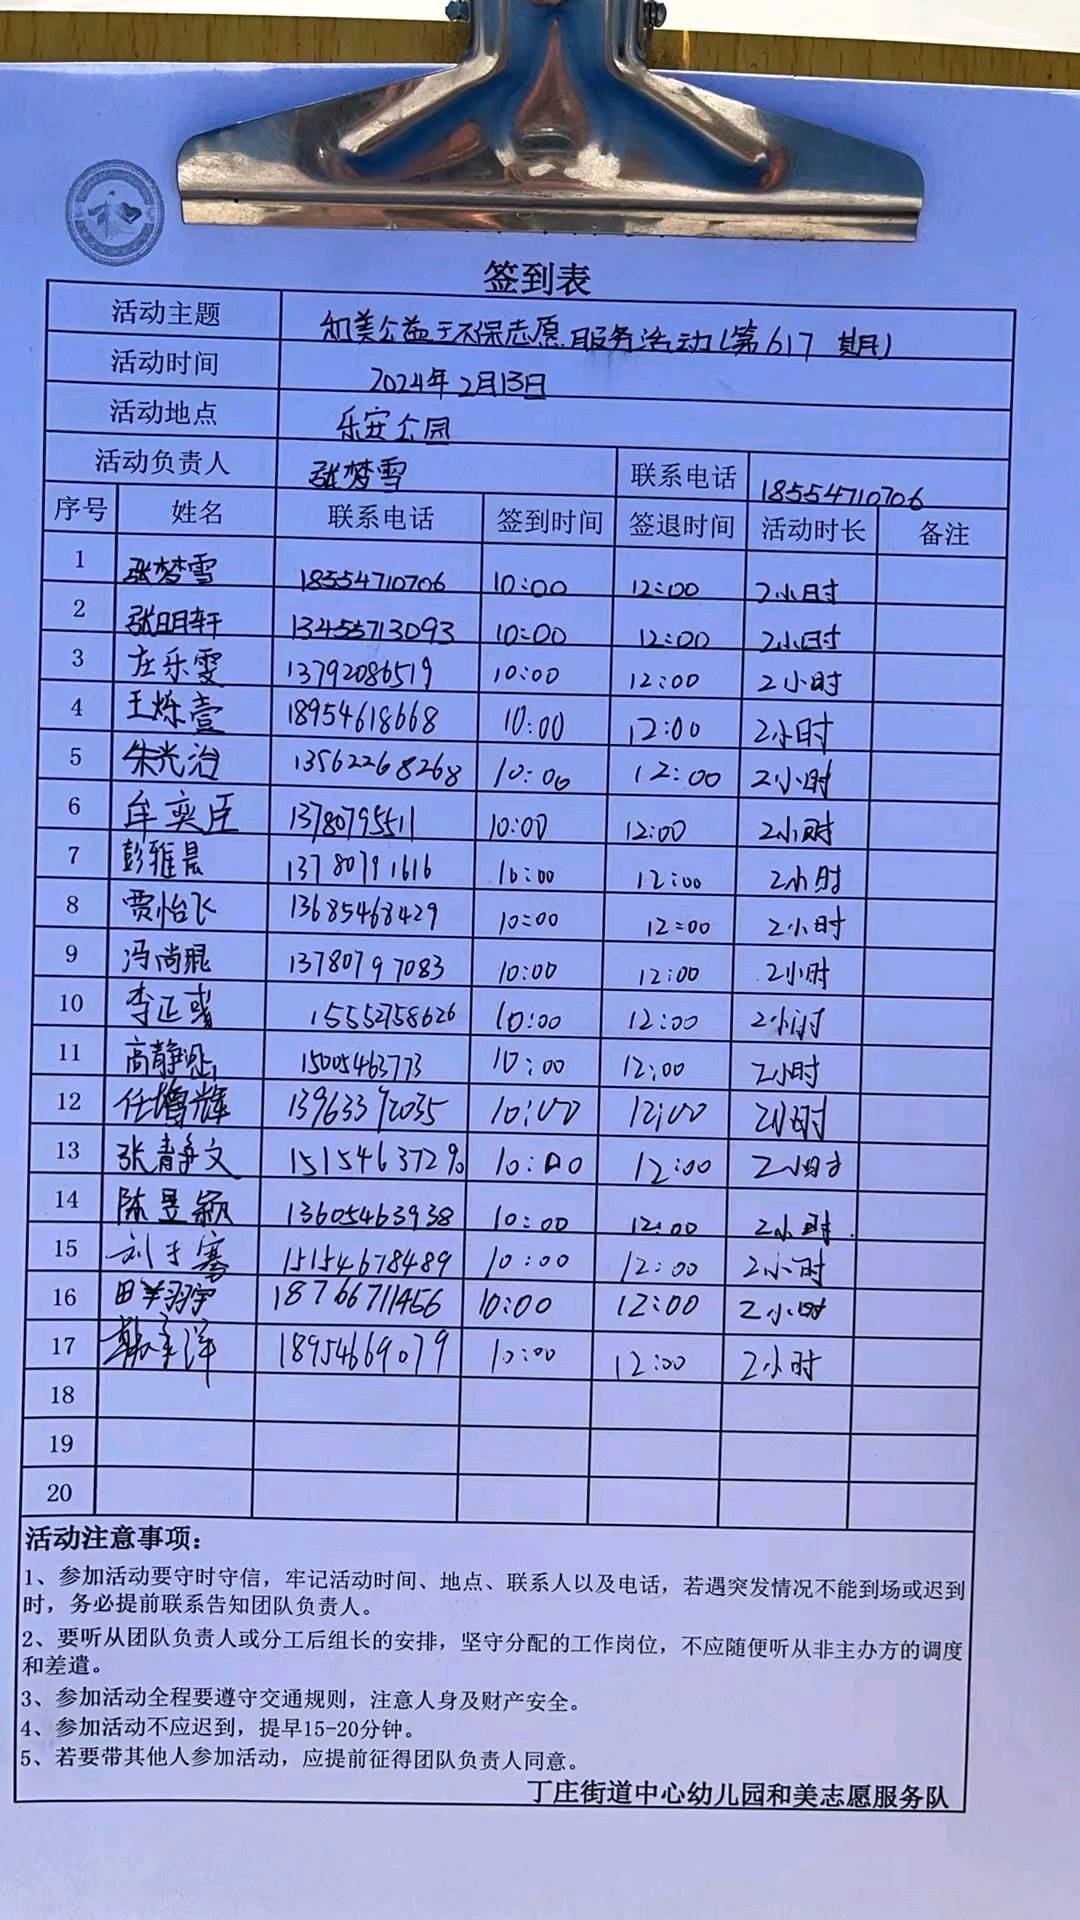 签到表
活动主题 和美公益环保志愿服务活动(第617期)
活动时间 2024年2月13日
活动地点 乐安公园
活动负责人 张梦雪 联系电话 18554710706
序号 姓名 联系电话 签到时间 签退时间 活动时长 备注
1 张梦雪 18554710706 10:00 12:00 2小时
2 张明轩 13455713093 10:00 12:00 2小时
3 庄乐雯 13792086519 10:00 12:00 2小时
4 王烁壹 18954618668 10:00 12:00 2小时
5 朱光治 13562268268 10:00 12:00 2小时
6 牟奕臣 13780795511 10:00 12:00 2小时
7 彭雅晨 13780791616 10:00 12:00 2小时
8 贾怡飞 13685468429 10:00 12:00 2小时
9 冯尚琨 13780797083 10:00 12:00 2小时
10 李正 15552758626 10:00 12:00 2小时
11 高静 15005463773 10:00 12:00 2小时
12 任增辉 13963392035 10:00 12:00 2小时
13 张静文 15154637290 10:00 12:00 2小时
14 陈昱颖 13605463938 10:00 12:00 2小时.
15 刘于骞 15154678489 10:00 12:00 2小时
16 田羽宇 18766711456 10:00 12:00 2小时
17 韩洋 18954669079 10:00 12:00 2小时
18
19
20
活动注意事项:
1、参加活动要守时守信,牢记活动时间、地点、联系人以及电话,若遇突发情况不能到场或迟到
时,务必提前联系告知团队负责人。
2、要听从团队负责人或分工后组长的安排,坚守分配的工作岗位,不应随便听从非主办方的调度
和差遣。
3、参加活动全程要遵守交通规则,注意人身及财产安全。
4、参加活动不应迟到,提早15-20分钟。
5、若要带其他人参加活动,应提前征得团队负责人同意。
丁庄街道中心幼儿园和美志愿服务队